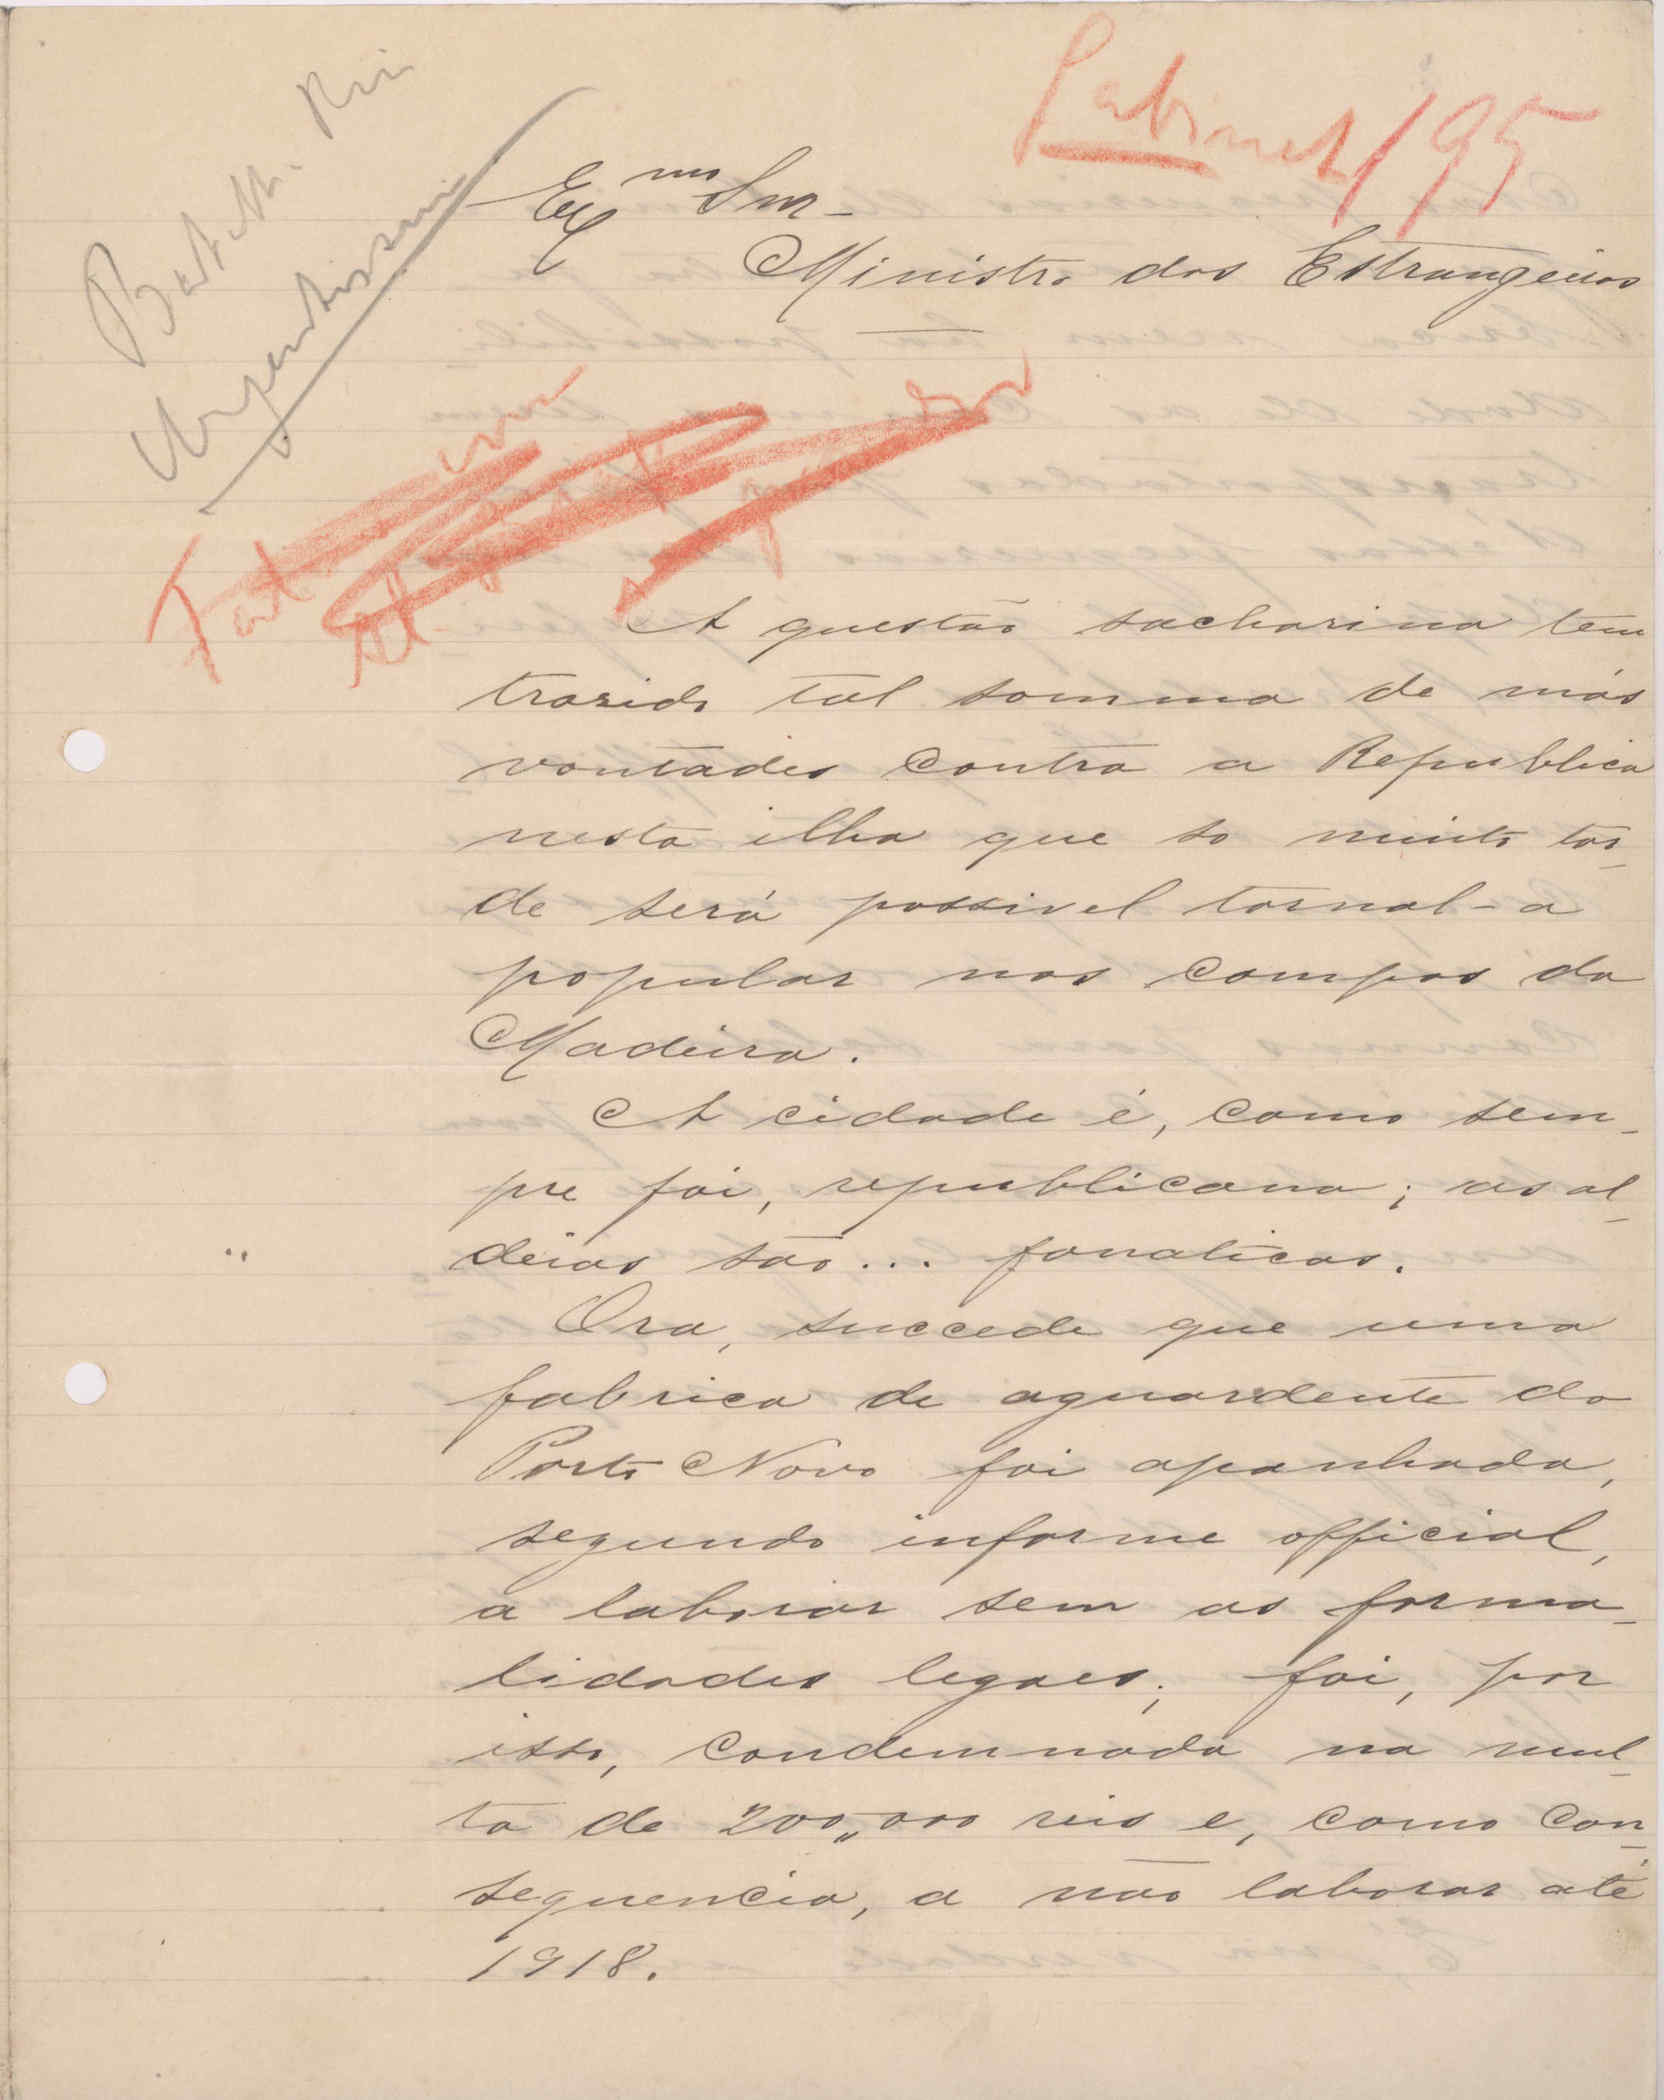 Gabinet/95
Urgentissimo
Ex mo Snr.
Ministro dos Estrangeiros
A questão sacharina tem
trasido tal somma de más
vontades contra a Republica
nesta ilha que so muito tar-
de será possivel tornal-a
popular nos campos da
Madeira.
A cidade é, como sem-
pre foi, republicana; as al-
deias são... fanaticas.
Ora, succede que uma
fabrica de aguardente do
Porto Novo foi apanhada,
segundo informe official,
a laborar sem as forma-
lidades legaes; foi, por
isso, condemnada na mul-
ta de 200,,000 reis e, como con-
sequencia, a não laborar até
1918.